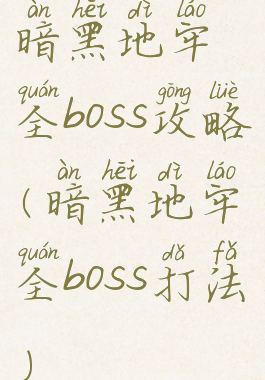 àn hēi dì láo
暗黑地牢
quán gōng lüè
全boss攻略
àn hēi dì láo
(暗黑地牢
quán dǎ fǎ
全boss打法
)